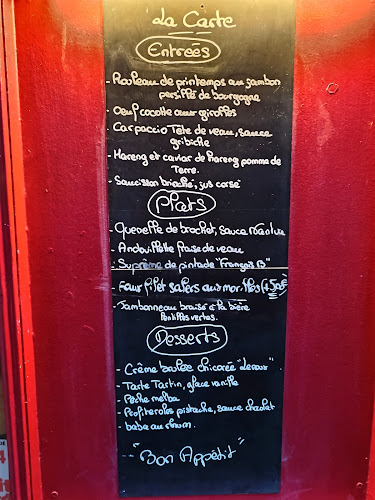 La Carte
Entrées
- Rouleau de printemps au jambon
persillé de bourgogne
- Oeuf cocotte aux girolles
- Carpaccio Tête de veau, sauce
gribiche
- Hareng et caviar de hareng pomme de
Terre.
- Saucisson brioché, jus corsé
Plats
- Quenelle de brochet, sauce Nantua
- Andouillette fraise de veau
- Suprême de pintade "François B"
- Faux filet salers aux morilles (+5€)
- Jambonneau braisé à la bière
lentilles vertes.
Desserts
- Crême brulée chicorée "leroux"
- Tarte Tartin, glace vanille
- Pêche melba
- Profiteroles pistache, sauce chocolat
- baba au rhum.
"Bon Appétit"